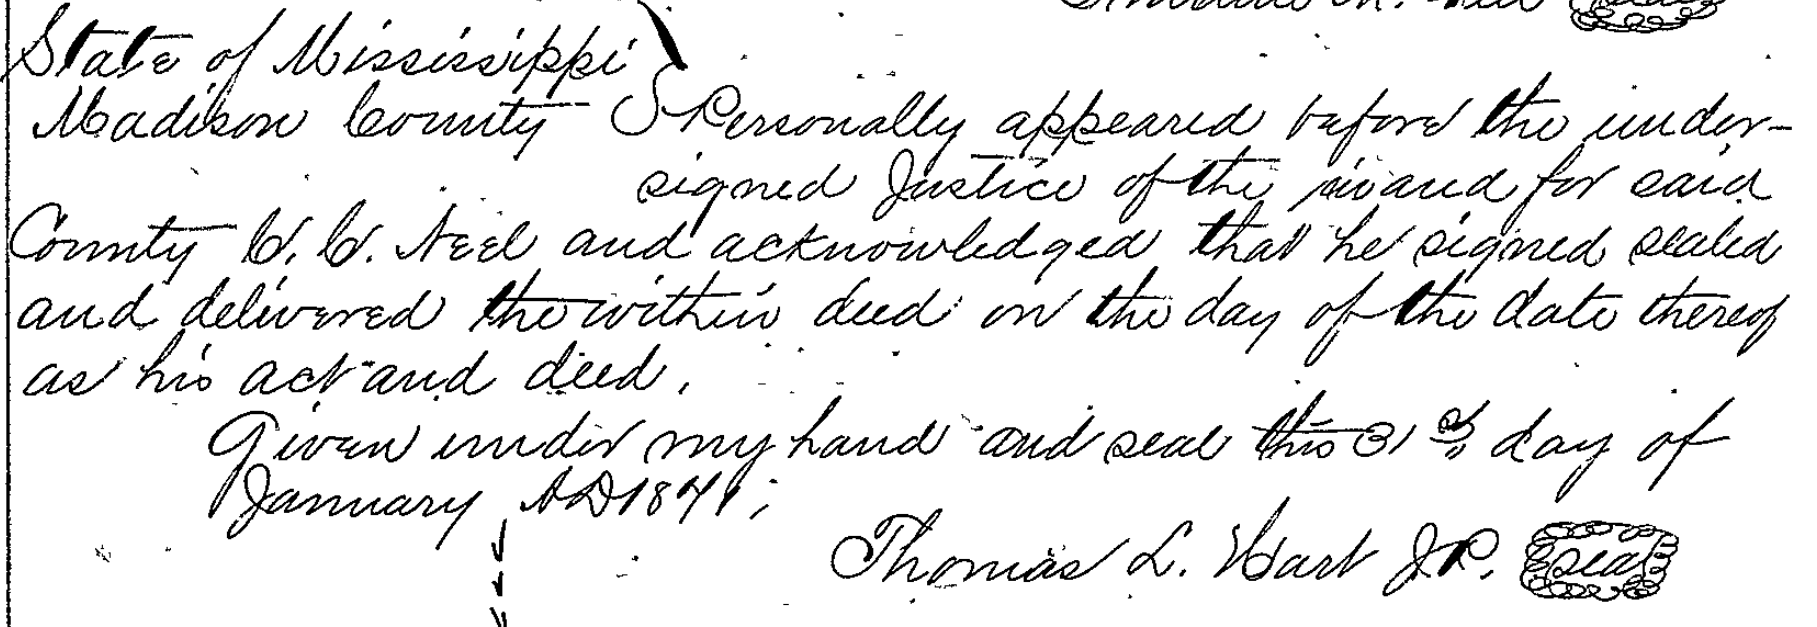 State of Mississippi
Madison County Personally appeared before the under-
signed Justice of the in and for said
County C. C. Neel and acknowledged that he signed sealed
and delivered the within deed on the day of the date thereof
as his act and deed.
Given under my hand and seal this 31st day of
January AD 1841;
Thomas L. Hart J.P. Seal